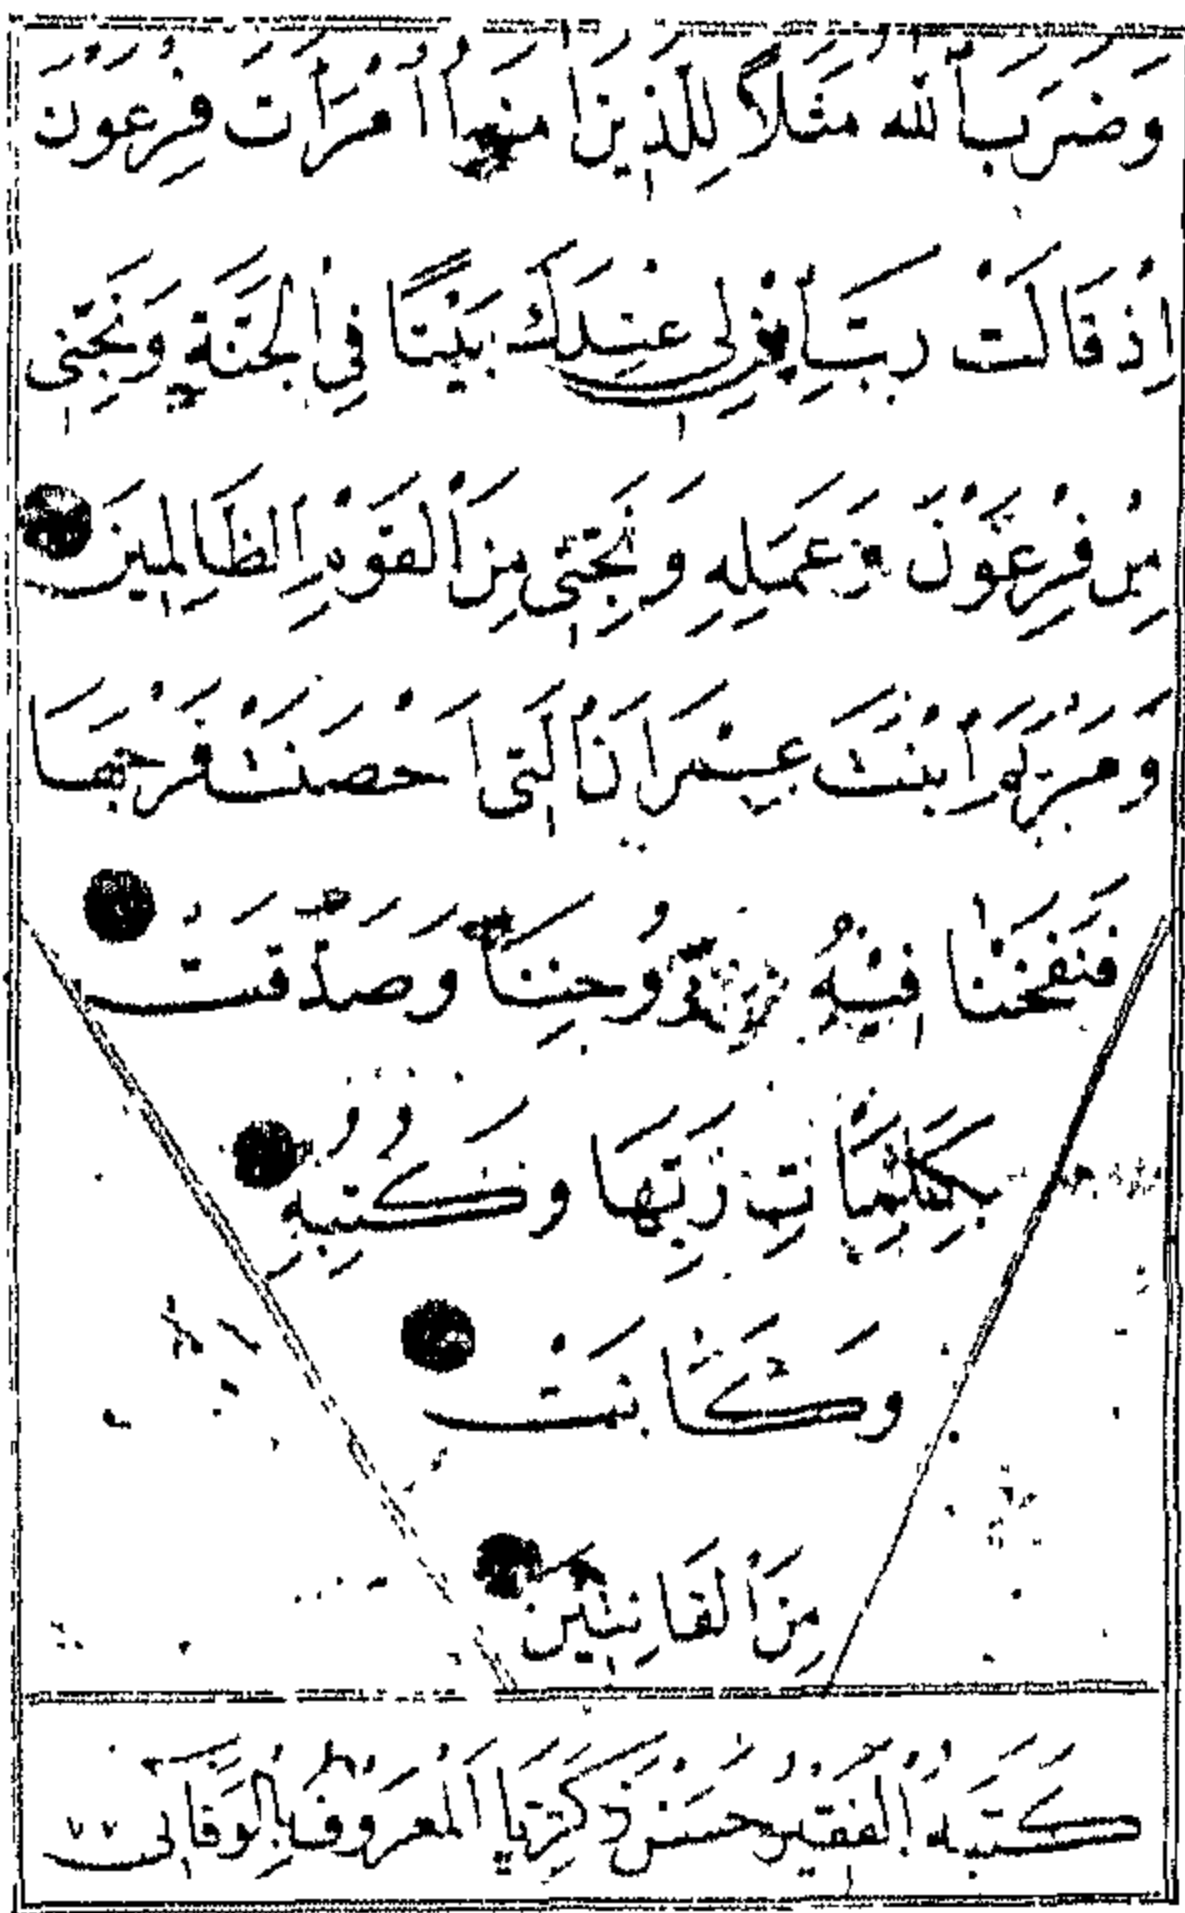 وَضَرَبَ اللّٰه مَثَلًا لِلَّذِينَ اٰمَنُوا امْرَأَتَ فِرْعَوْنَ
اِذْ قَالَتْ رَبِّ ابْنِ لِي عِنْدَكَ بَيْتًا فِي الْجَنَّةِ وَنَجِّنِي
مِنْ فِرْعَوْنَ وَعَمَلِهِ وَنَجِّنِي مِنَ الْقَوْمِ الظَّالِمِينَ
وَمَرْيَمَ ابْنَتَ عِمْرَانَ الَّتِي اَحْصَنَتْ فَرْجَهَا
فَنَفَخْنَا فِيْهِ مِنْ رُوحِنَا وَصَدَّقَتْ
بِكَلِمَاتِ رَبِّهَا وَكُتُبِهِ
وَكَانَتْ
مِنَ الْقَانِتِينَ
كَتَبَهُ الْفَقِيْرُ حَسَنْ زَكَرِيَّا الْمَعْرُوفُ بِالْوَفَائِي ٧٧